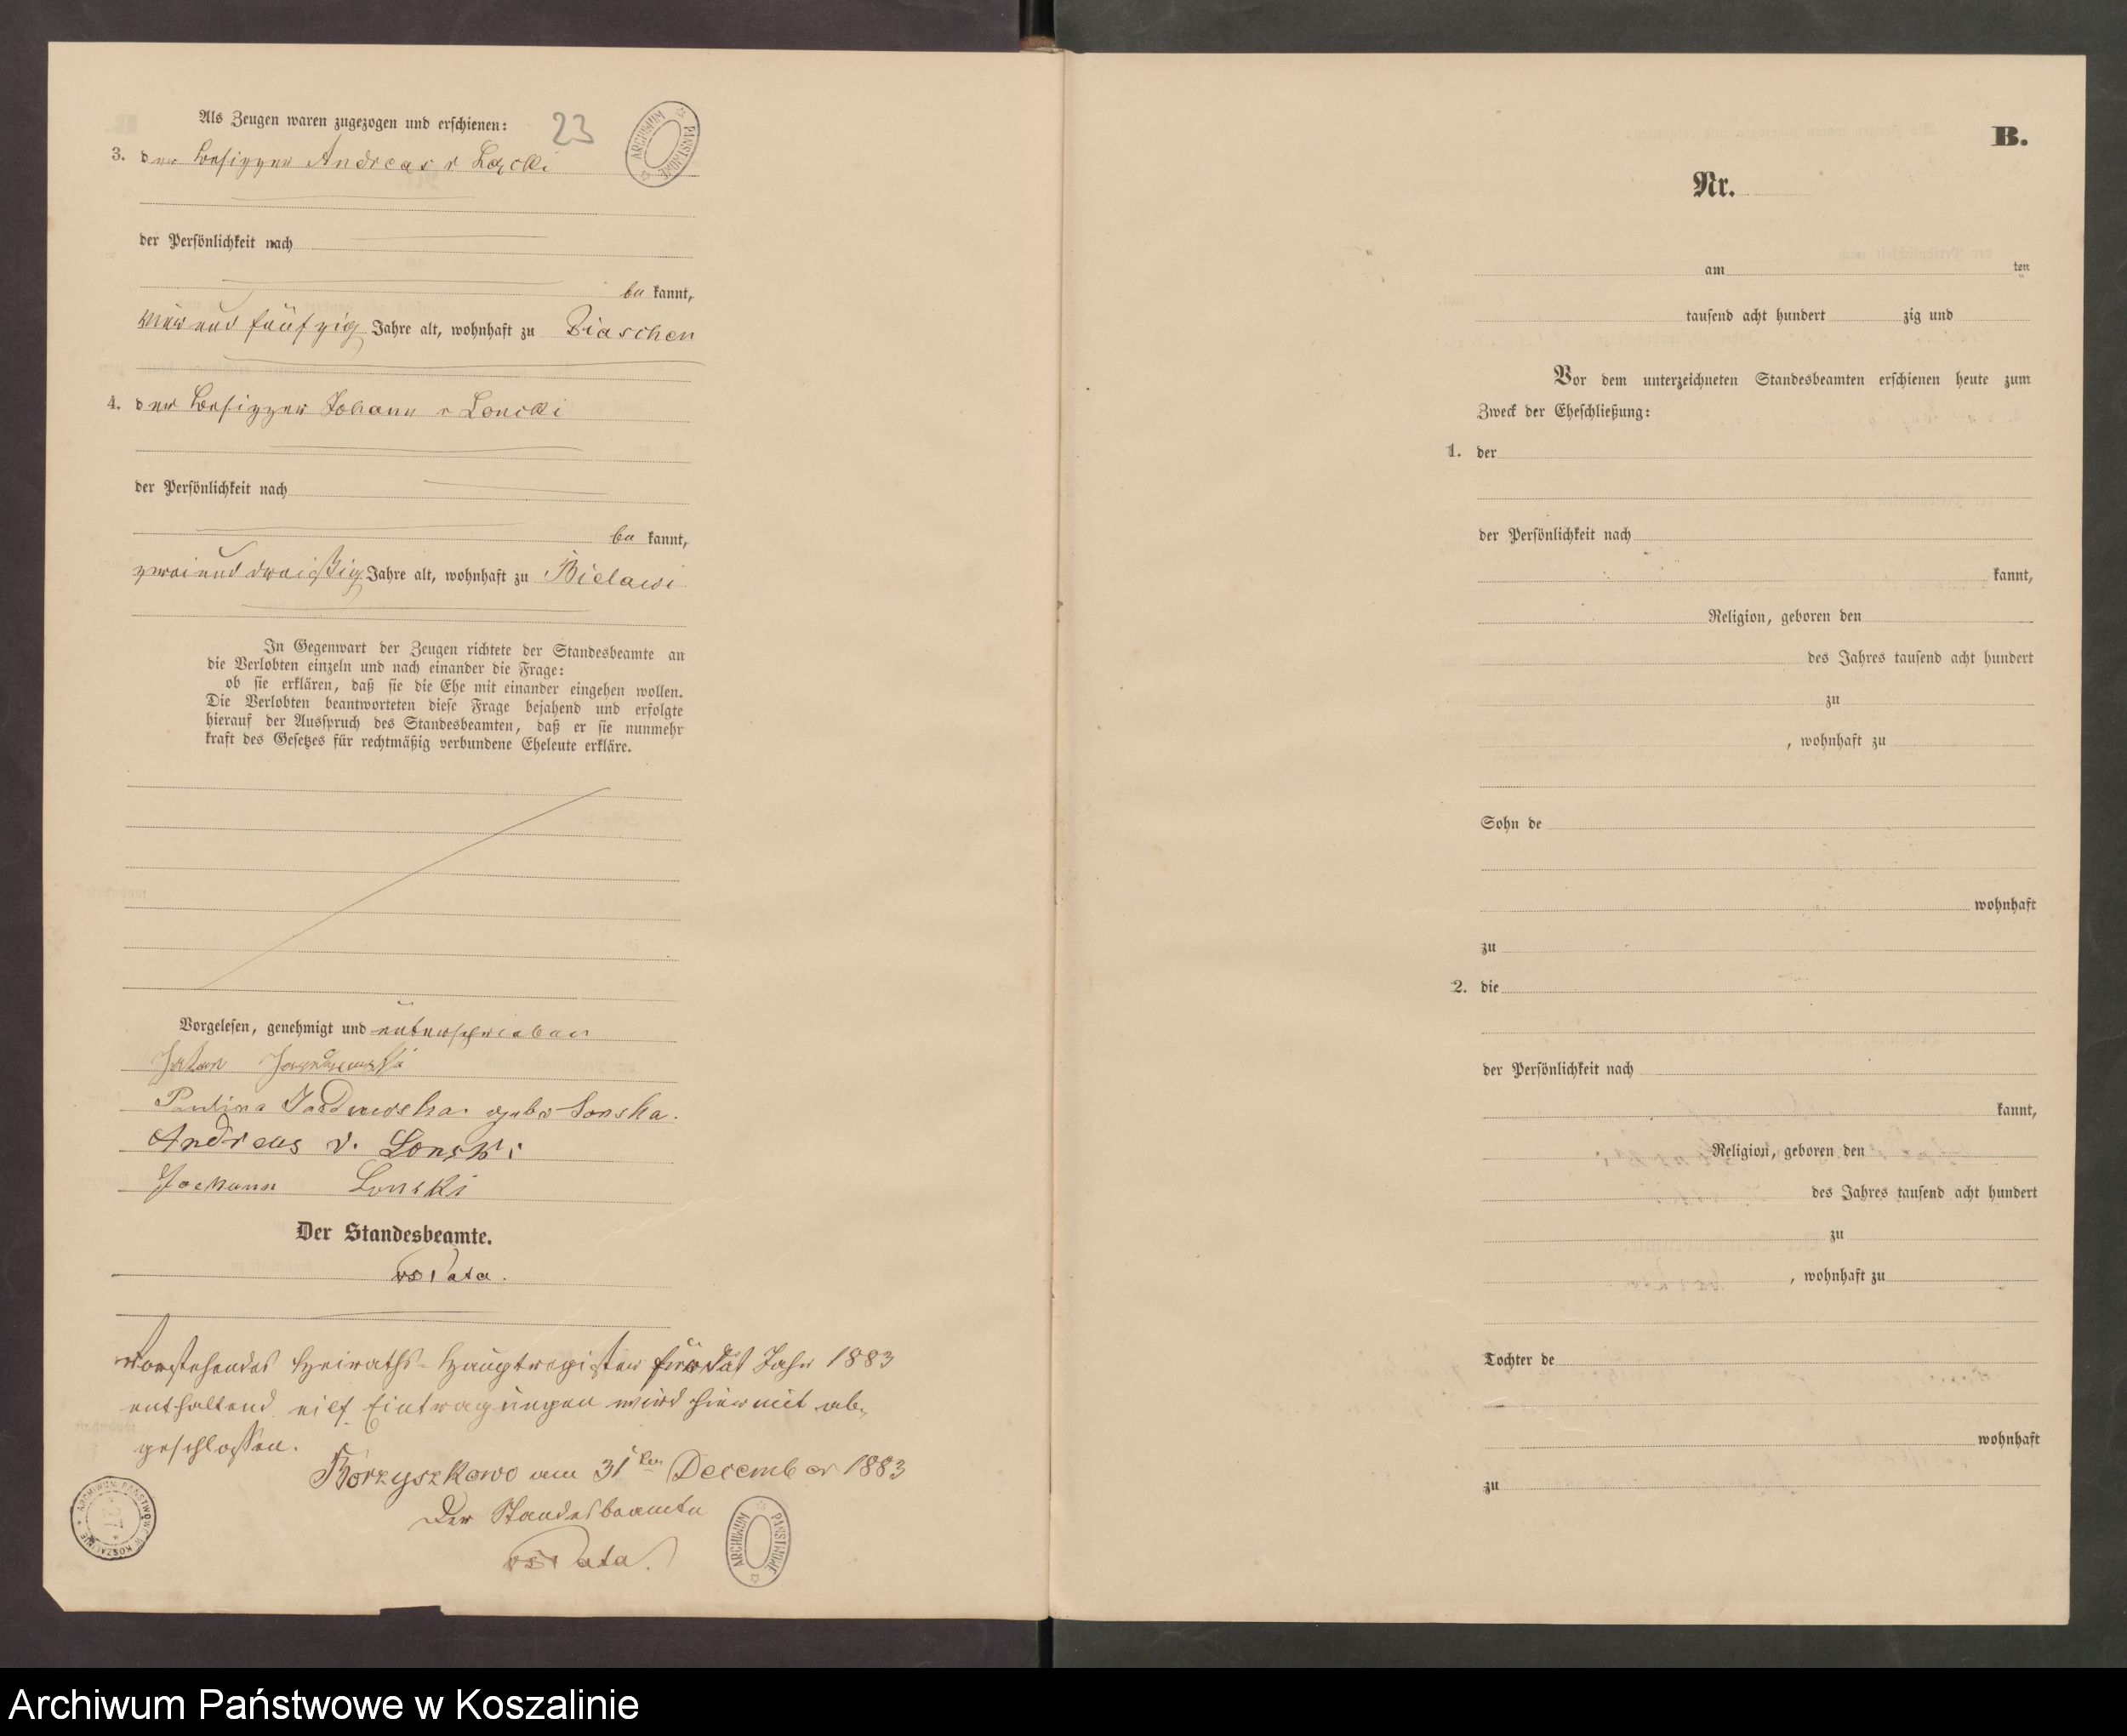 Als Zeugen waren zugezogen und erschienen:
23
ARCHIWUM PAŃSTWOWE
3. der Besitzer Andreas v Łącki
der Persönlichkeit nach
be kannt,
vier und fünfzig Jahre alt, wohnhaft zu Diaschen
4. der Besitzer Johann v Loncki
der Persönlichkeit nach
be kannt,
zwei und dreißig Jahre alt, wohnhaft zu Bielawi
In Gegenwart der Zeugen richtete der Standesbeamte an
die Verlobten einzeln und nach einander die Frage:
ob sie erklären, daß sie die Ehe mit einander eingehen wollen.
Die Verlobten beantworteten diese Frage bejahend und erfolgte
hierauf der Ausspruch des Standesbeamten, daß er sie nunmehr
kraft des Gesetzes für rechtmäßig verbundene Eheleute erkläre.
Vorgelesen, genehmigt und unterschrieben
Paulina geb Lonska.
Andreas v. Lonski
Johann Lonski
Der Standesbeamte.
Vorstehendes Heiraths-Hauptregister für das Jahr 1883
enthaltend eilf Eintragungen wird hiermit ab-
geschlossen.
Borzyszkowo am 31ten December 1883
Der Standesbeamte
ARCHIWUM PAŃSTWOWE W KOSZALINIE
ARCHIWUM PAŃSTWOWE
B.
Nr.
am ten
tausend acht hundert zig und
Vor dem unterzeichneten Standesbeamten erschienen heute zum
Zweck der Eheschließung:
1. der
der Persönlichkeit nach
kannt,
Religion, geboren den
des Jahres tausend acht hundert
zu
, wohnhaft zu
Sohn de
wohnhaft
zu
2. die
der Persönlichkeit nach
kannt,
Religion, geboren den
des Jahres tausend acht hundert
zu
, wohnhaft zu
Tochter de
wohnhaft
zu
Archiwum Państwowe w Koszalinie